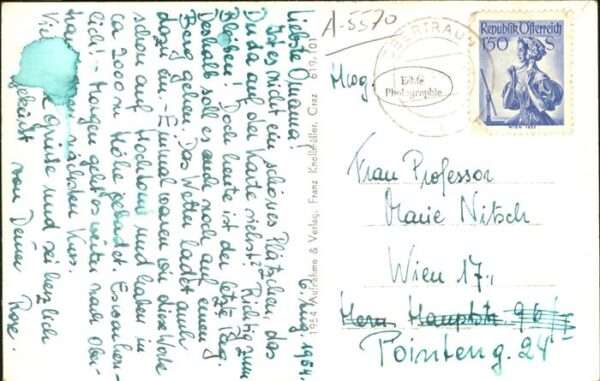 A-5570
OBERTRAUN
Republik Österreich
150 S
WIEN 1853
Echte
Photographie
6. Aug. 1954.
Liebste Omama!
Ist es nicht ein schönes Plätzchen, das
Du da auf der Karte siehst? Richtig zum
Bleiben! Doch heute ist der letzte Tag.
Deshalb soll es auch noch auf einen
Berg gehen. Das Wetter ladet auch
dazu ein. - Einmal waren wir diese Woche
schon auf Hochtour und haben in
ca 2000 m Höhe gebadet. Es war herr-
lich! - Morgen geht es weiter nach Ober-
nächsten Kurs.
Viele Grüße und sei herzlich
geküsst von Deiner Rose.
1954 Aufnahme & Verlag, Franz Knollmüller, Graz 619/101
Frau Professor
Marie Nitsch
Wien 17.,
Hern. Hauptstr. 96
Pointeng. 24